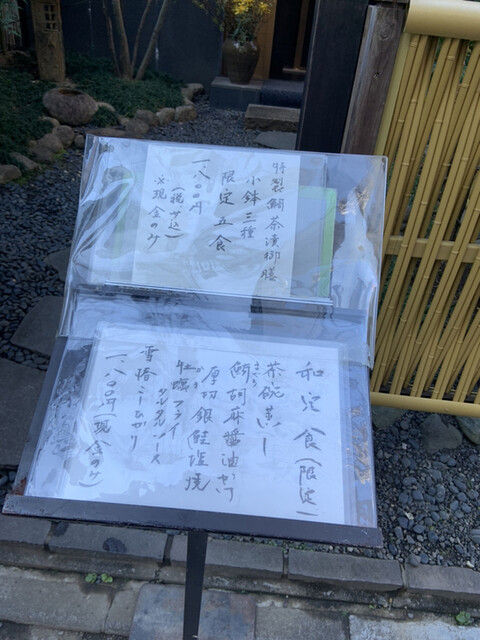 特製鯛茶漬御膳
小鉢三種
限定五食
一、八〇〇円
(税込)
※現金のみ
和定食(限定)
茶碗蒸し
鯛胡麻醤油かけ
厚切銀鮭塩焼
牡蠣フライ
かき
タルタルソース
雪椿こしひかり
一、八〇〇円(現金のみ)